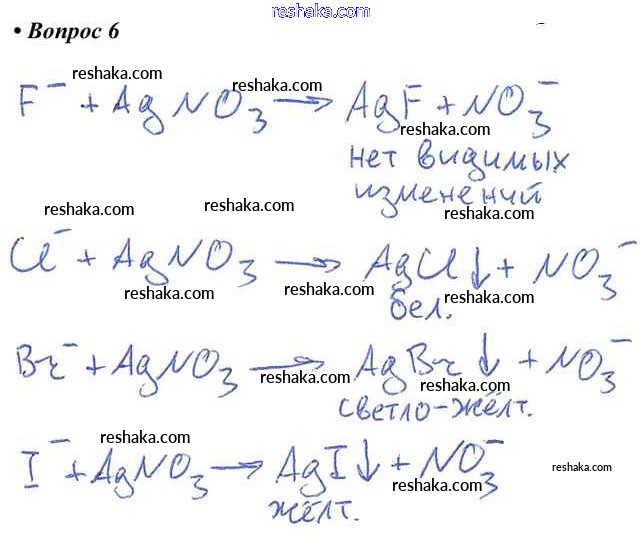 reshaka.com
• Вопрос 6
reshaka.com reshaka.com
F⁻ + AgNO₃ → AgF + NO₃⁻
reshaka.com
нет видимых
изменений
reshaka.com reshaka.com reshaka.com
Cl⁻ + AgNO₃ → AgCl↓ + NO₃⁻
reshaka.com reshaka.com reshaka.com
бел.
Br⁻ + AgNO₃ → AgBr↓ + NO₃⁻
reshaka.com reshaka.com
светло-жёлт.
reshaka.com
I⁻ + AgNO₃ → AgI↓ + NO₃⁻
reshaka.com reshaka.com
жёлт.